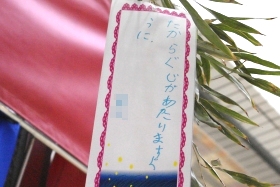 たからくじがあたりますよ
うに。